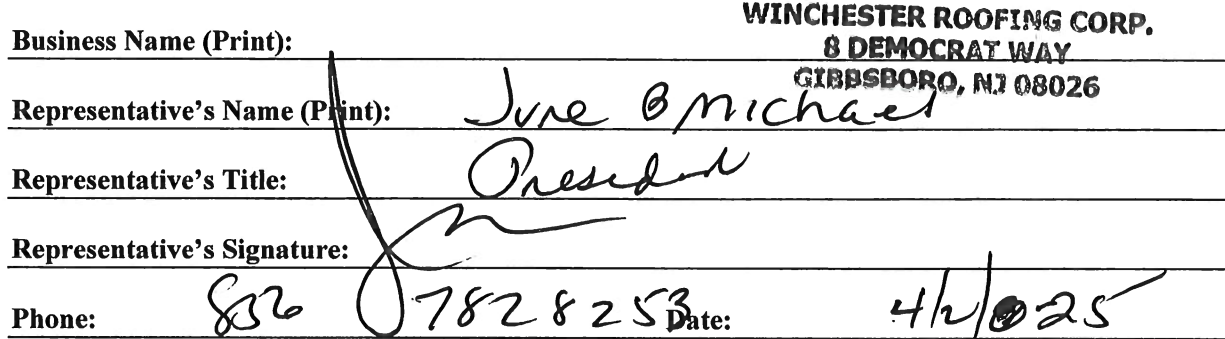 WINCHESTER ROOFING CORP.
Business Name (Print): 8 DEMOCRAT WAY
GIBBSBORO, NJ 08026
Representative's Name (Print): June B Michael
Representative's Title: President
Representative's Signature:
Phone: 856 7828253 Date: 4/2/25